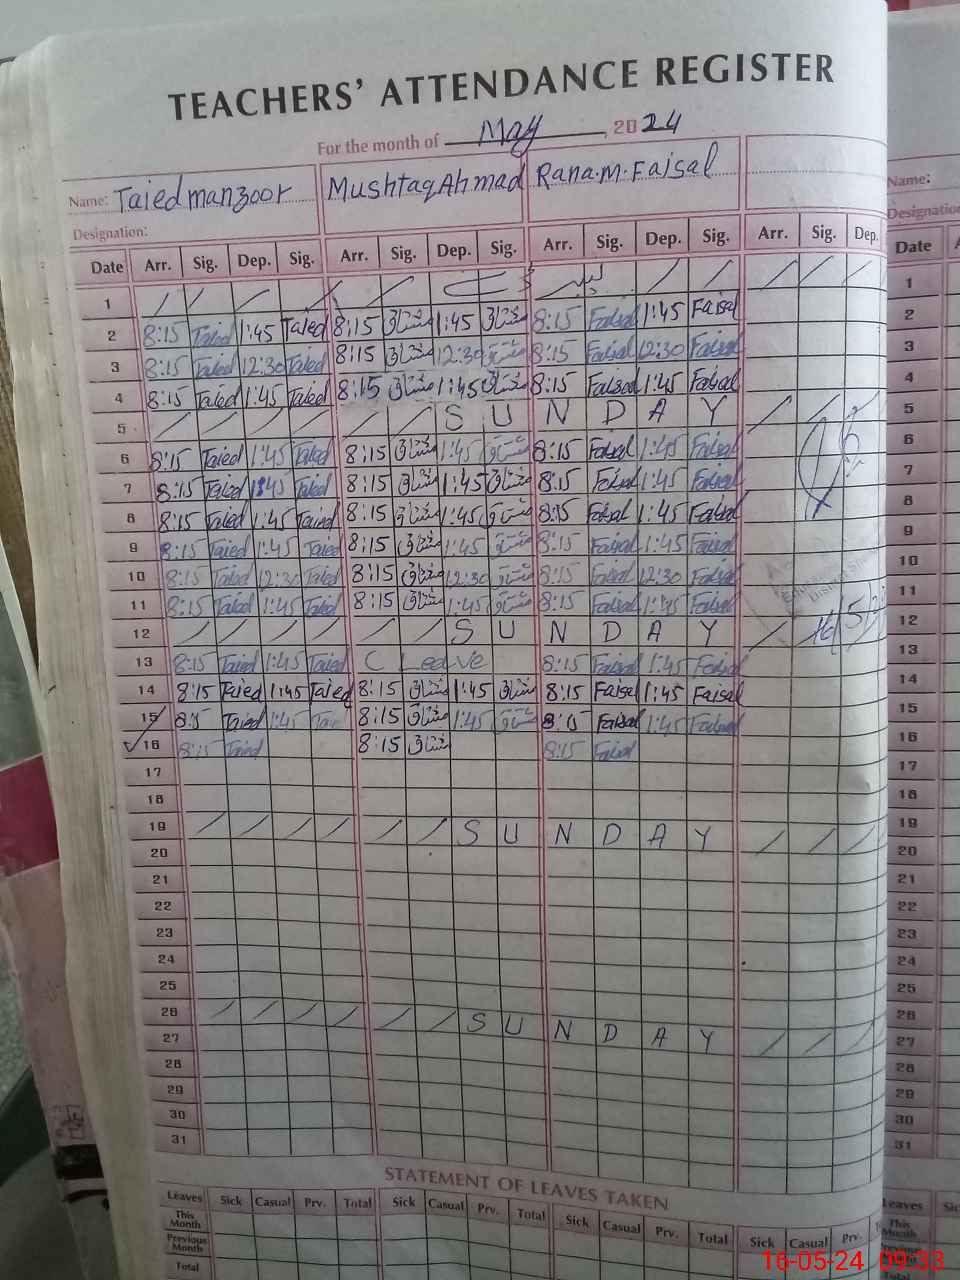 TEACHERS' ATTENDANCE REGISTER
For the month of May, 2024
Name: Taied manzoor Mushtaq Ahmad Rana.M.Faisal Name:
Designation: Designation
Date Arr. Sig. Dep. Sig. Arr. Sig. Dep. Sig. Arr. Sig. Dep. Sig. Arr. Sig. Dep. Date
1 1
2 8:15 Taied 1:45 Taied 8:15 مشتاق 1:45 مشتاق 8:15 Faisal 1:45 Faisal 2
3 8:15 Taied 12:30 Taied 8:15 مشتاق 12:30 مشتاق 8:15 Faisal 12:30 Faisal 3
4 8:15 Taied 1:45 Taied 8:15 مشتاق 1:45 مشتاق 8:15 Faisal 1:45 Faisal 4
5 S U N D A Y 5
6 8:15 Taied 1:45 Taied 8:15 مشتاق 1:45 مشتاق 8:15 Faisal 1:45 Faisal 6
7 8:15 Taied 1:45 Taied 8:15 مشتاق 1:45 مشتاق 8:15 Faisal 1:45 Faisal 7
8 8:15 Taied 1:45 Taied 8:15 مشتاق 1:45 مشتاق 8:15 Faisal 1:45 Faisal 8
9 8:15 Taied 1:45 Taied 8:15 مشتاق 1:45 مشتاق 8:15 Faisal 1:45 Faisal 9
10 8:15 Taied 12:30 Taied 8:15 مشتاق 12:30 مشتاق 8:15 Faisal 12:30 Faisal 10
11 8:15 Taied 1:45 Taied 8:15 مشتاق 1:45 مشتاق 8:15 Faisal 1:45 Faisal 11
12 S U N D A Y 12
13 8:15 Taied 1:45 Taied C Leave 8:15 Faisal 1:45 Faisal 13
14 8:15 Taied 1:45 Taied 8:15 مشتاق 1:45 مشتاق 8:15 Faisal 1:45 Faisal 14
15 8:15 Taied 1:45 Taied 8:15 مشتاق 1:45 مشتاق 8:15 Faisal 1:45 Faisal 15
16 8:15 Taied 8:15 مشتاق 8:15 Faisal 16
17 17
18 18
19 S U N D A Y 19
20 20
21 21
22 22
23 23
24 24
25 25
26 S U N D A Y 26
27 27
28 28
29 29
30 30
31 31
STATEMENT OF LEAVES TAKEN
Leaves Sick Casual Prv. Total Sick Casual Prv. Total Sick Casual Prv. Total Sick Casual Prv. Leaves
This Month This Month
Previous Month
Total Total
16-05-24 09:33